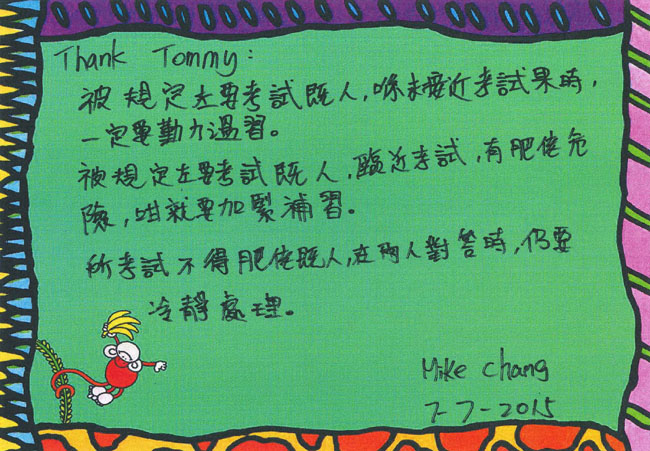 Thank Tommy:
被規定左要考試既人,喺未接近考試果時,
一定要勤力溫習。
被規定左要考試既人,臨近考試,有肥佬危
險,咁就要加緊補習。
所考試不得肥佬既人,在兩人對答時,仍要
冷靜處理。
Mike Chang
7-7-2015